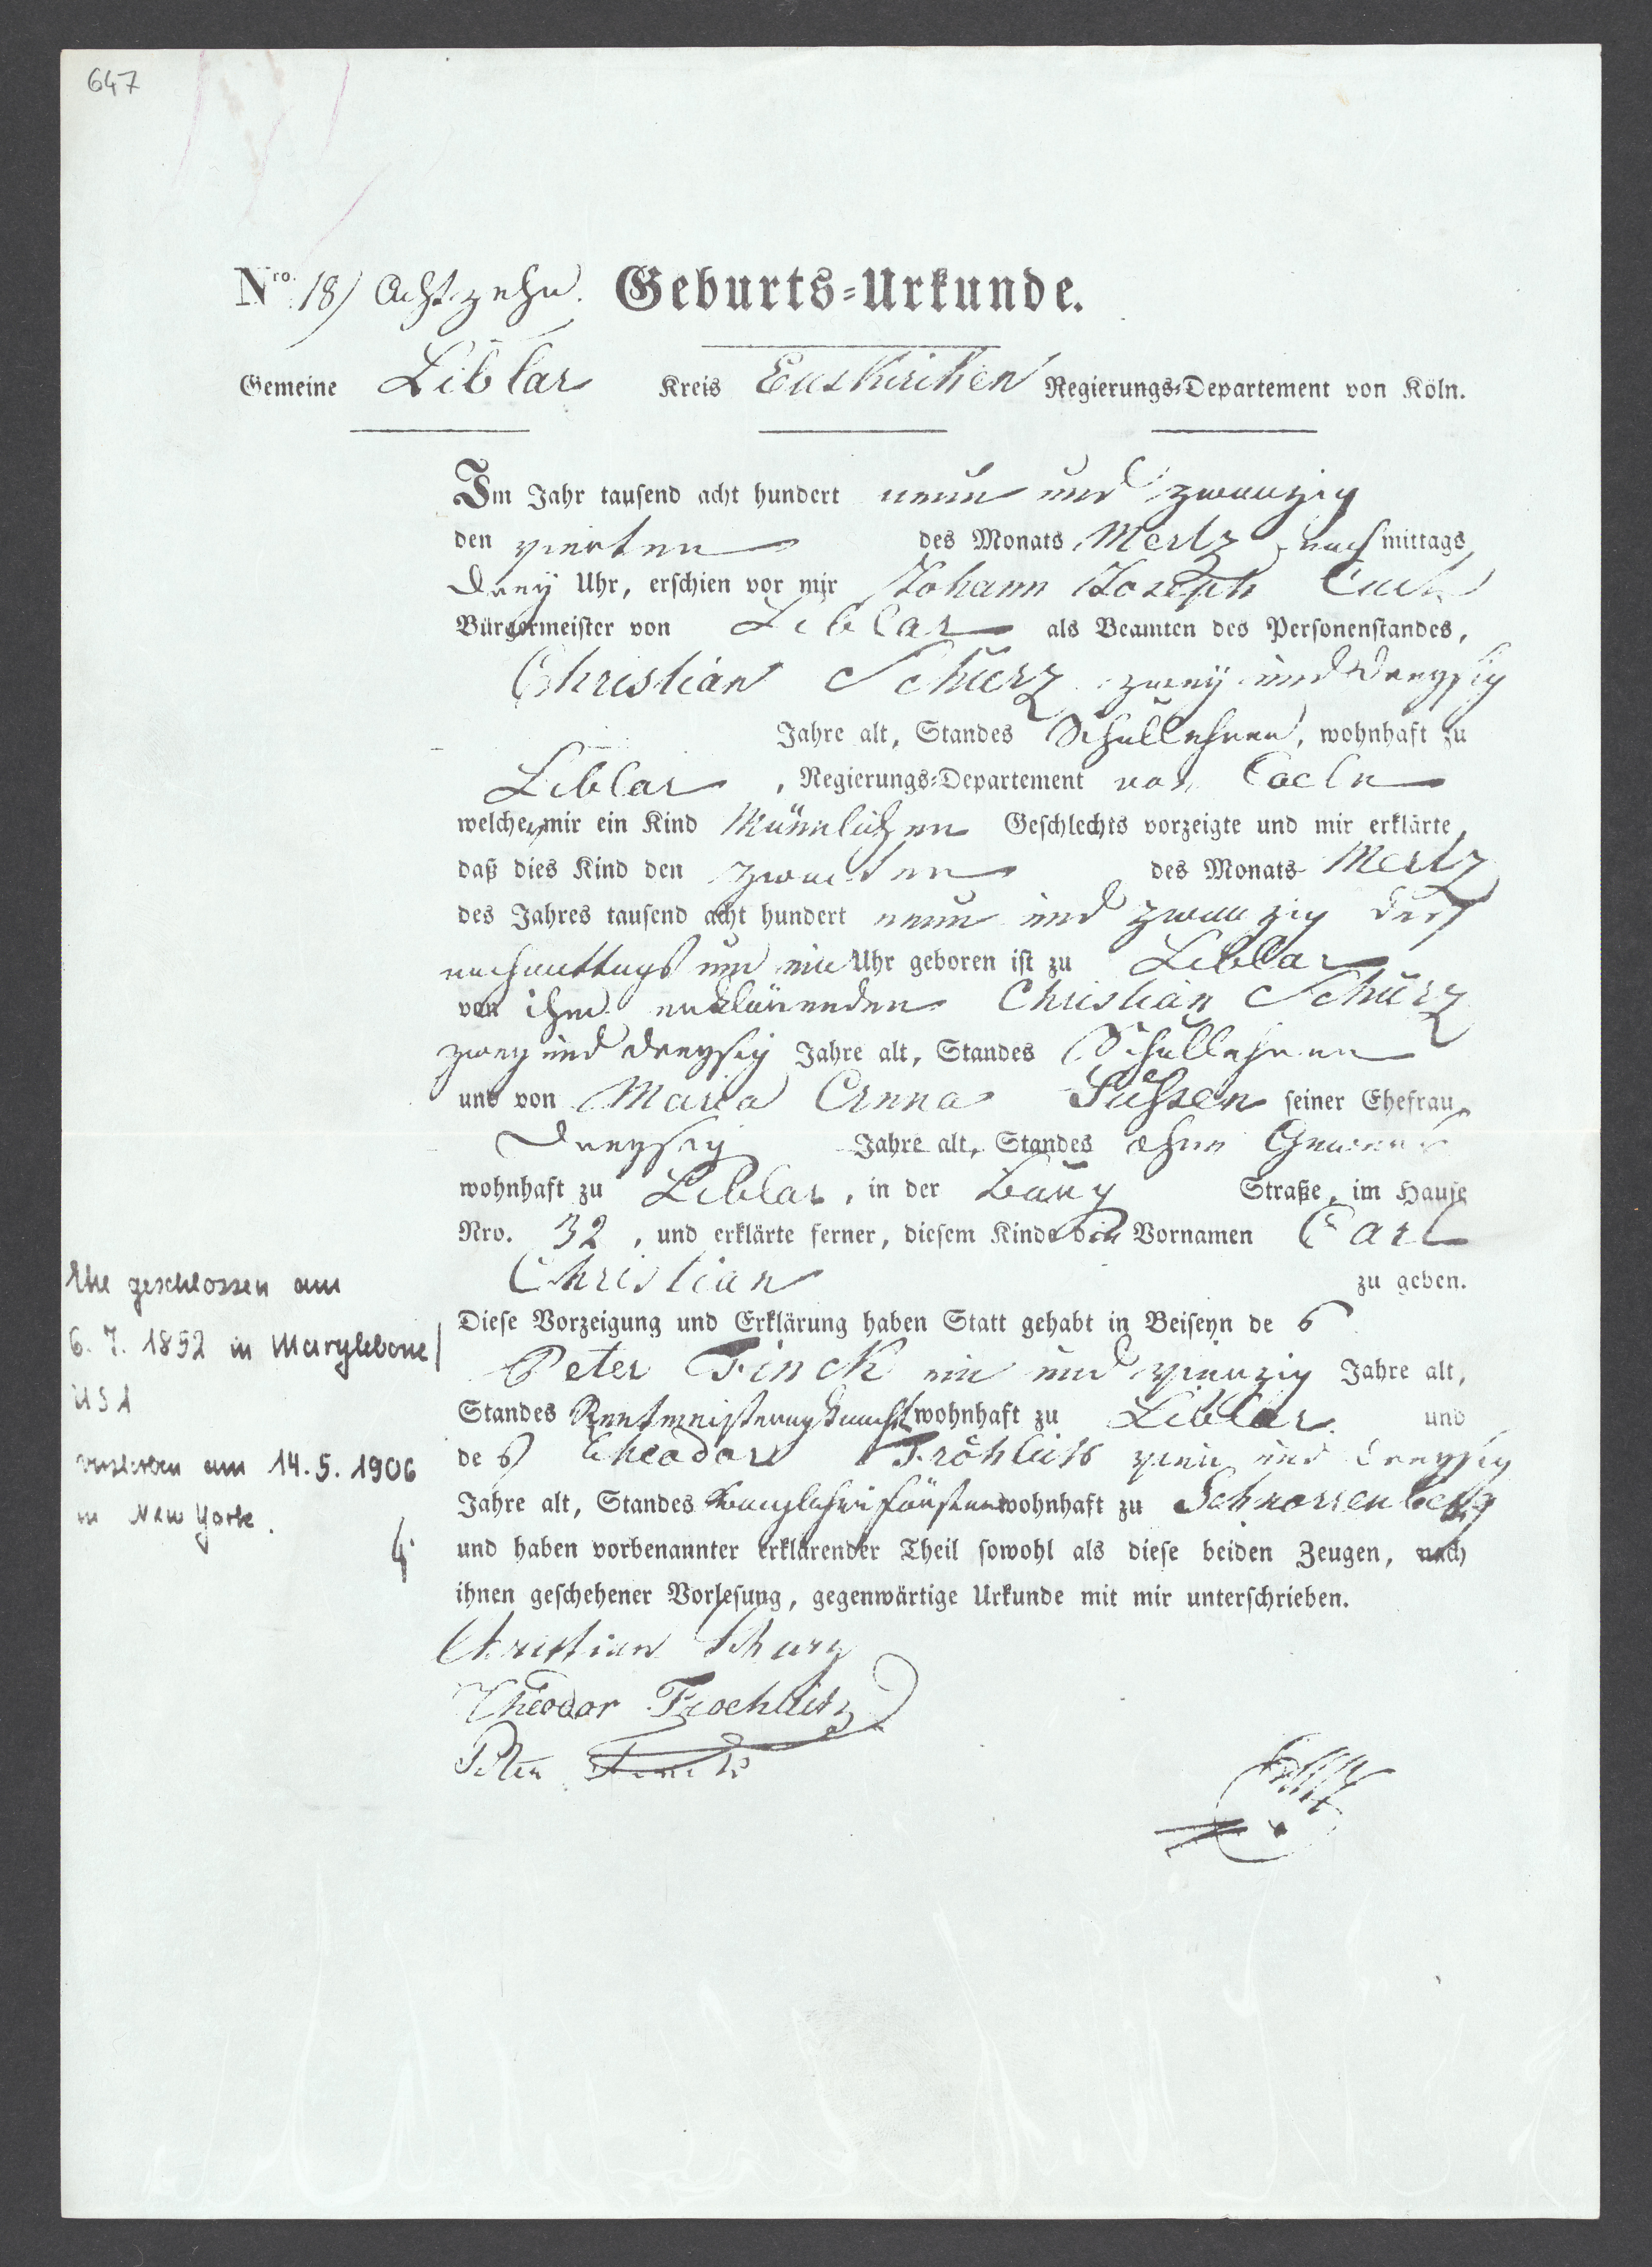 647
Nro. 18) Achtzehn. Geburts-Urkunde.
Gemeine Liblar Kreis Euskirchen Regierungs-Departement von Köln.
Im Jahr tausend acht hundert neun und zwanzig
den vierten des Monats Mertz nachmittags
drey Uhr, erschien vor mir Johann Joseph
Bürgermeister von Liblar als Beamten des Personenstandes,
Christian Schurz zwey und dreysig
Jahre alt, Standes Schullehrer, wohnhaft zu
Liblar, Regierungs-Departement von Coeln
welcher mir ein Kind Männlichen Geschlechts vorzeigte und mir erklärte,
daß dies Kind den zweiten des Monats Mertz
des Jahres tausend acht hundert neun und zwanzig des
nachmittags um ein Uhr geboren ist zu Liblar
von ihm erklärenden Christian Schurz
zwey und dreysig Jahre alt, Standes Schullehrer
und von Maria Anna Jüssen seiner Ehefrau,
dreysig Jahre alt, Standes ohne Gewerb
wohnhaft zu Liblar, in der Burg Straße, im Hause
Nro. 32, und erklärte ferner, diesem Kinde die Vornamen Carl
Christian zu geben.
Diese Vorzeigung und Erklärung haben Statt gehabt in Beiseyn des
Peter Finck ein und vierzig Jahre alt,
Standes wohnhaft zu Liblar und
des Theodor Fröhlich vier und dreysig
Jahre alt, Standes wohnhaft zu Schnorrenberg
und haben vorbenannter erklärender Theil sowohl als diese beiden Zeugen, nach
ihnen geschehener Vorlesung, gegenwärtige Urkunde mit mir unterschrieben.
Christian Schurz
Theodor Froehlich
Peter Finck
Ehe geschlossen am
6. 7. 1852 in Marylebone/
USA
verstorben am 14.5.1906
in New York.